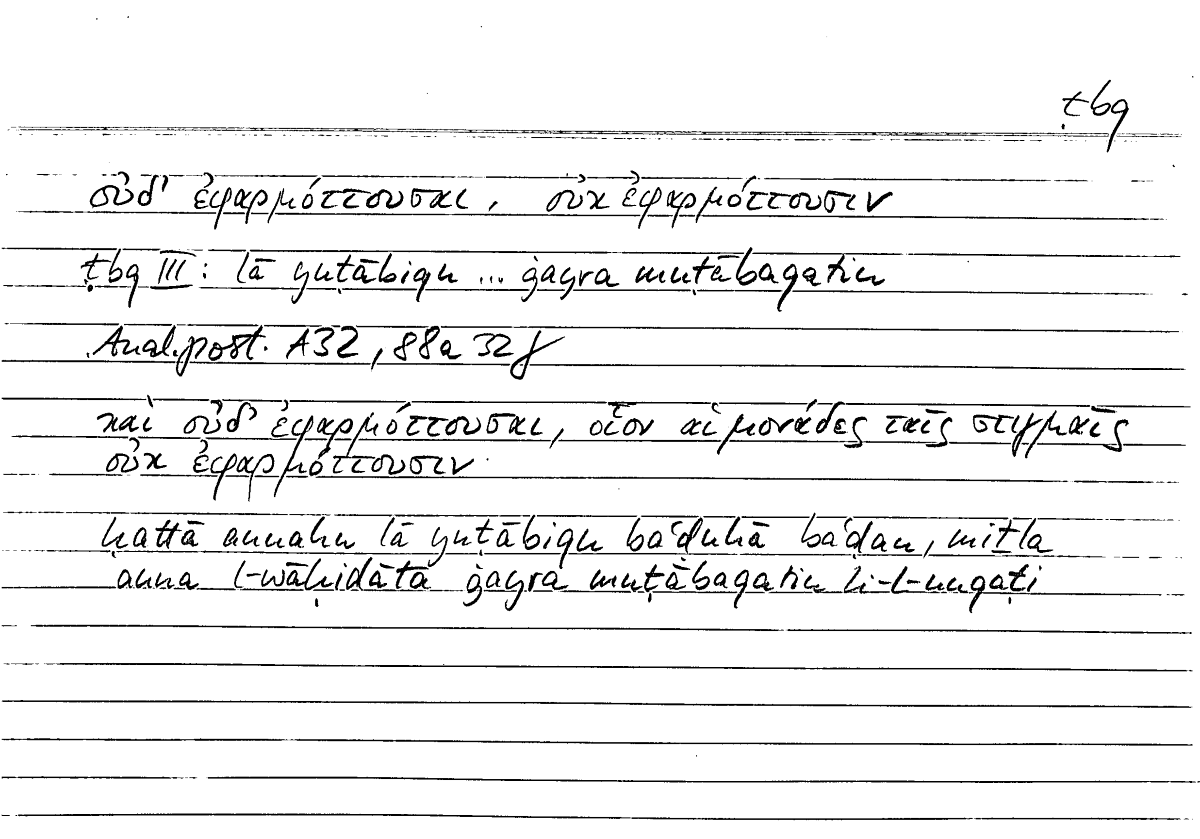 ṭbq
οὐδ’ ἐφαρμόττουσαι, οὐκ ἐφαρμόττουσιν
ṭbq III: lā yuṭābiqu ... ġayra muṭābaqatin
Anal.post. A32, 88a 32f
καὶ οὐδ’ ἐφαρμόττουσαι, οἷον αἱ μονάδες ταῖς στιγμαῖς
οὐκ ἐφαρμόττουσιν
ḥattā annahu lā yuṭābiqu baʿḍuhā baʿḍan, miṯla
anna l-wāḥidāta ġayra muṭābaqatin li-l-nuqaṭi